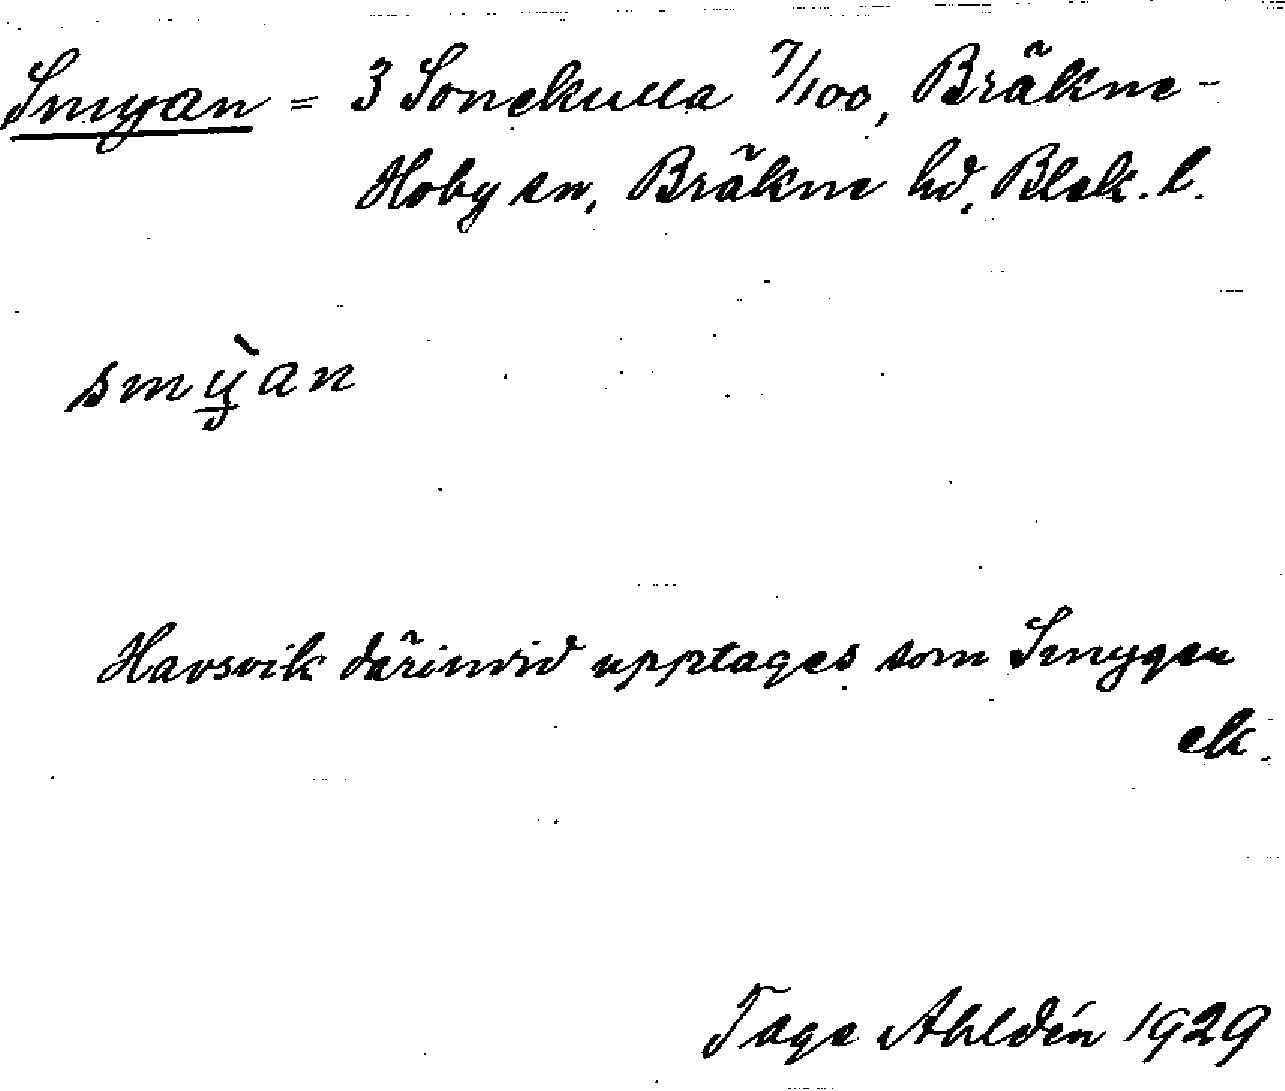 Smyan = 3 Sonekulla 7/100, Bräkne-
Hoby sn, Bräkne hd, Blek. l.
smỳ̠an
Havsvik därinvid upptages som Smygen
ek.
Tage Ahldén 1929